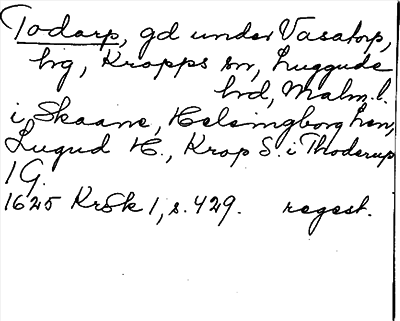 Todarp, gd under Vasatorp,
hg, Kropps sn, Luggude
hrd, Malm. l.
i Skaane, Helsingborg Len,
Lugud H., Krop S. i Thoderup
1 G.
1625 KrSk 1, s. 429. regest.